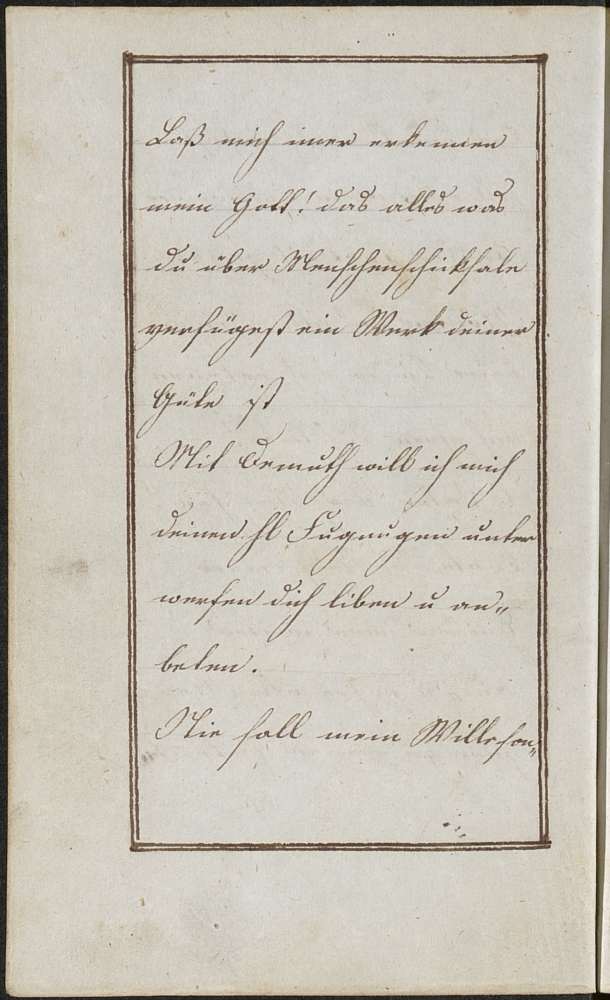 Laß mich imer erkennen
mein Gott! das alles was
du über Menschenschicksale
verfügest ein Werk deiner
Güte ist
Mit Demuth will ich mich
deinen hl Fügungen unter
werfen dich liben u an„
beten.
Nie soll mein Wille son„